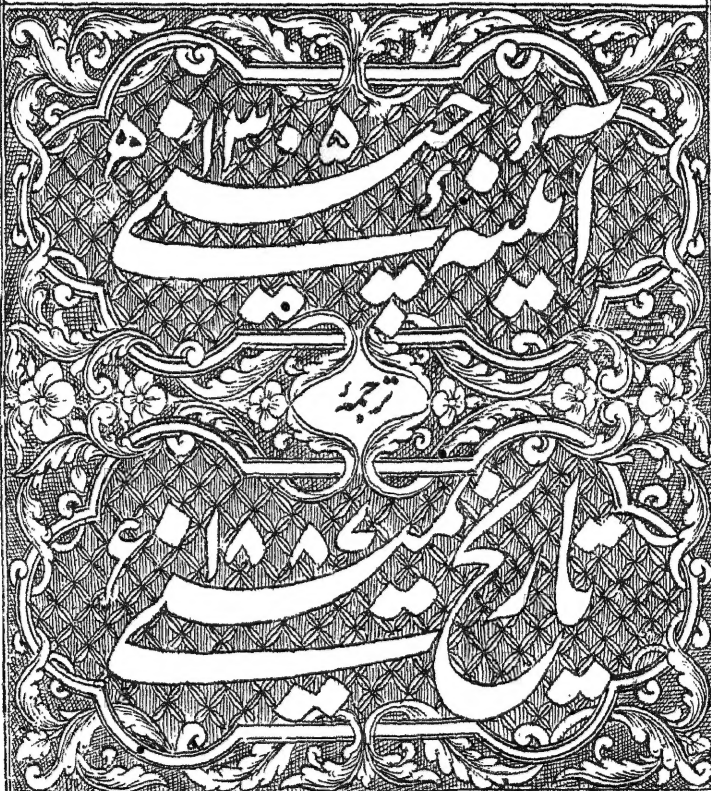 آئینہ چینی ۱۳۰۵ھ
ترجمہ
تاریخ یمینی ۱۸۸۷ء